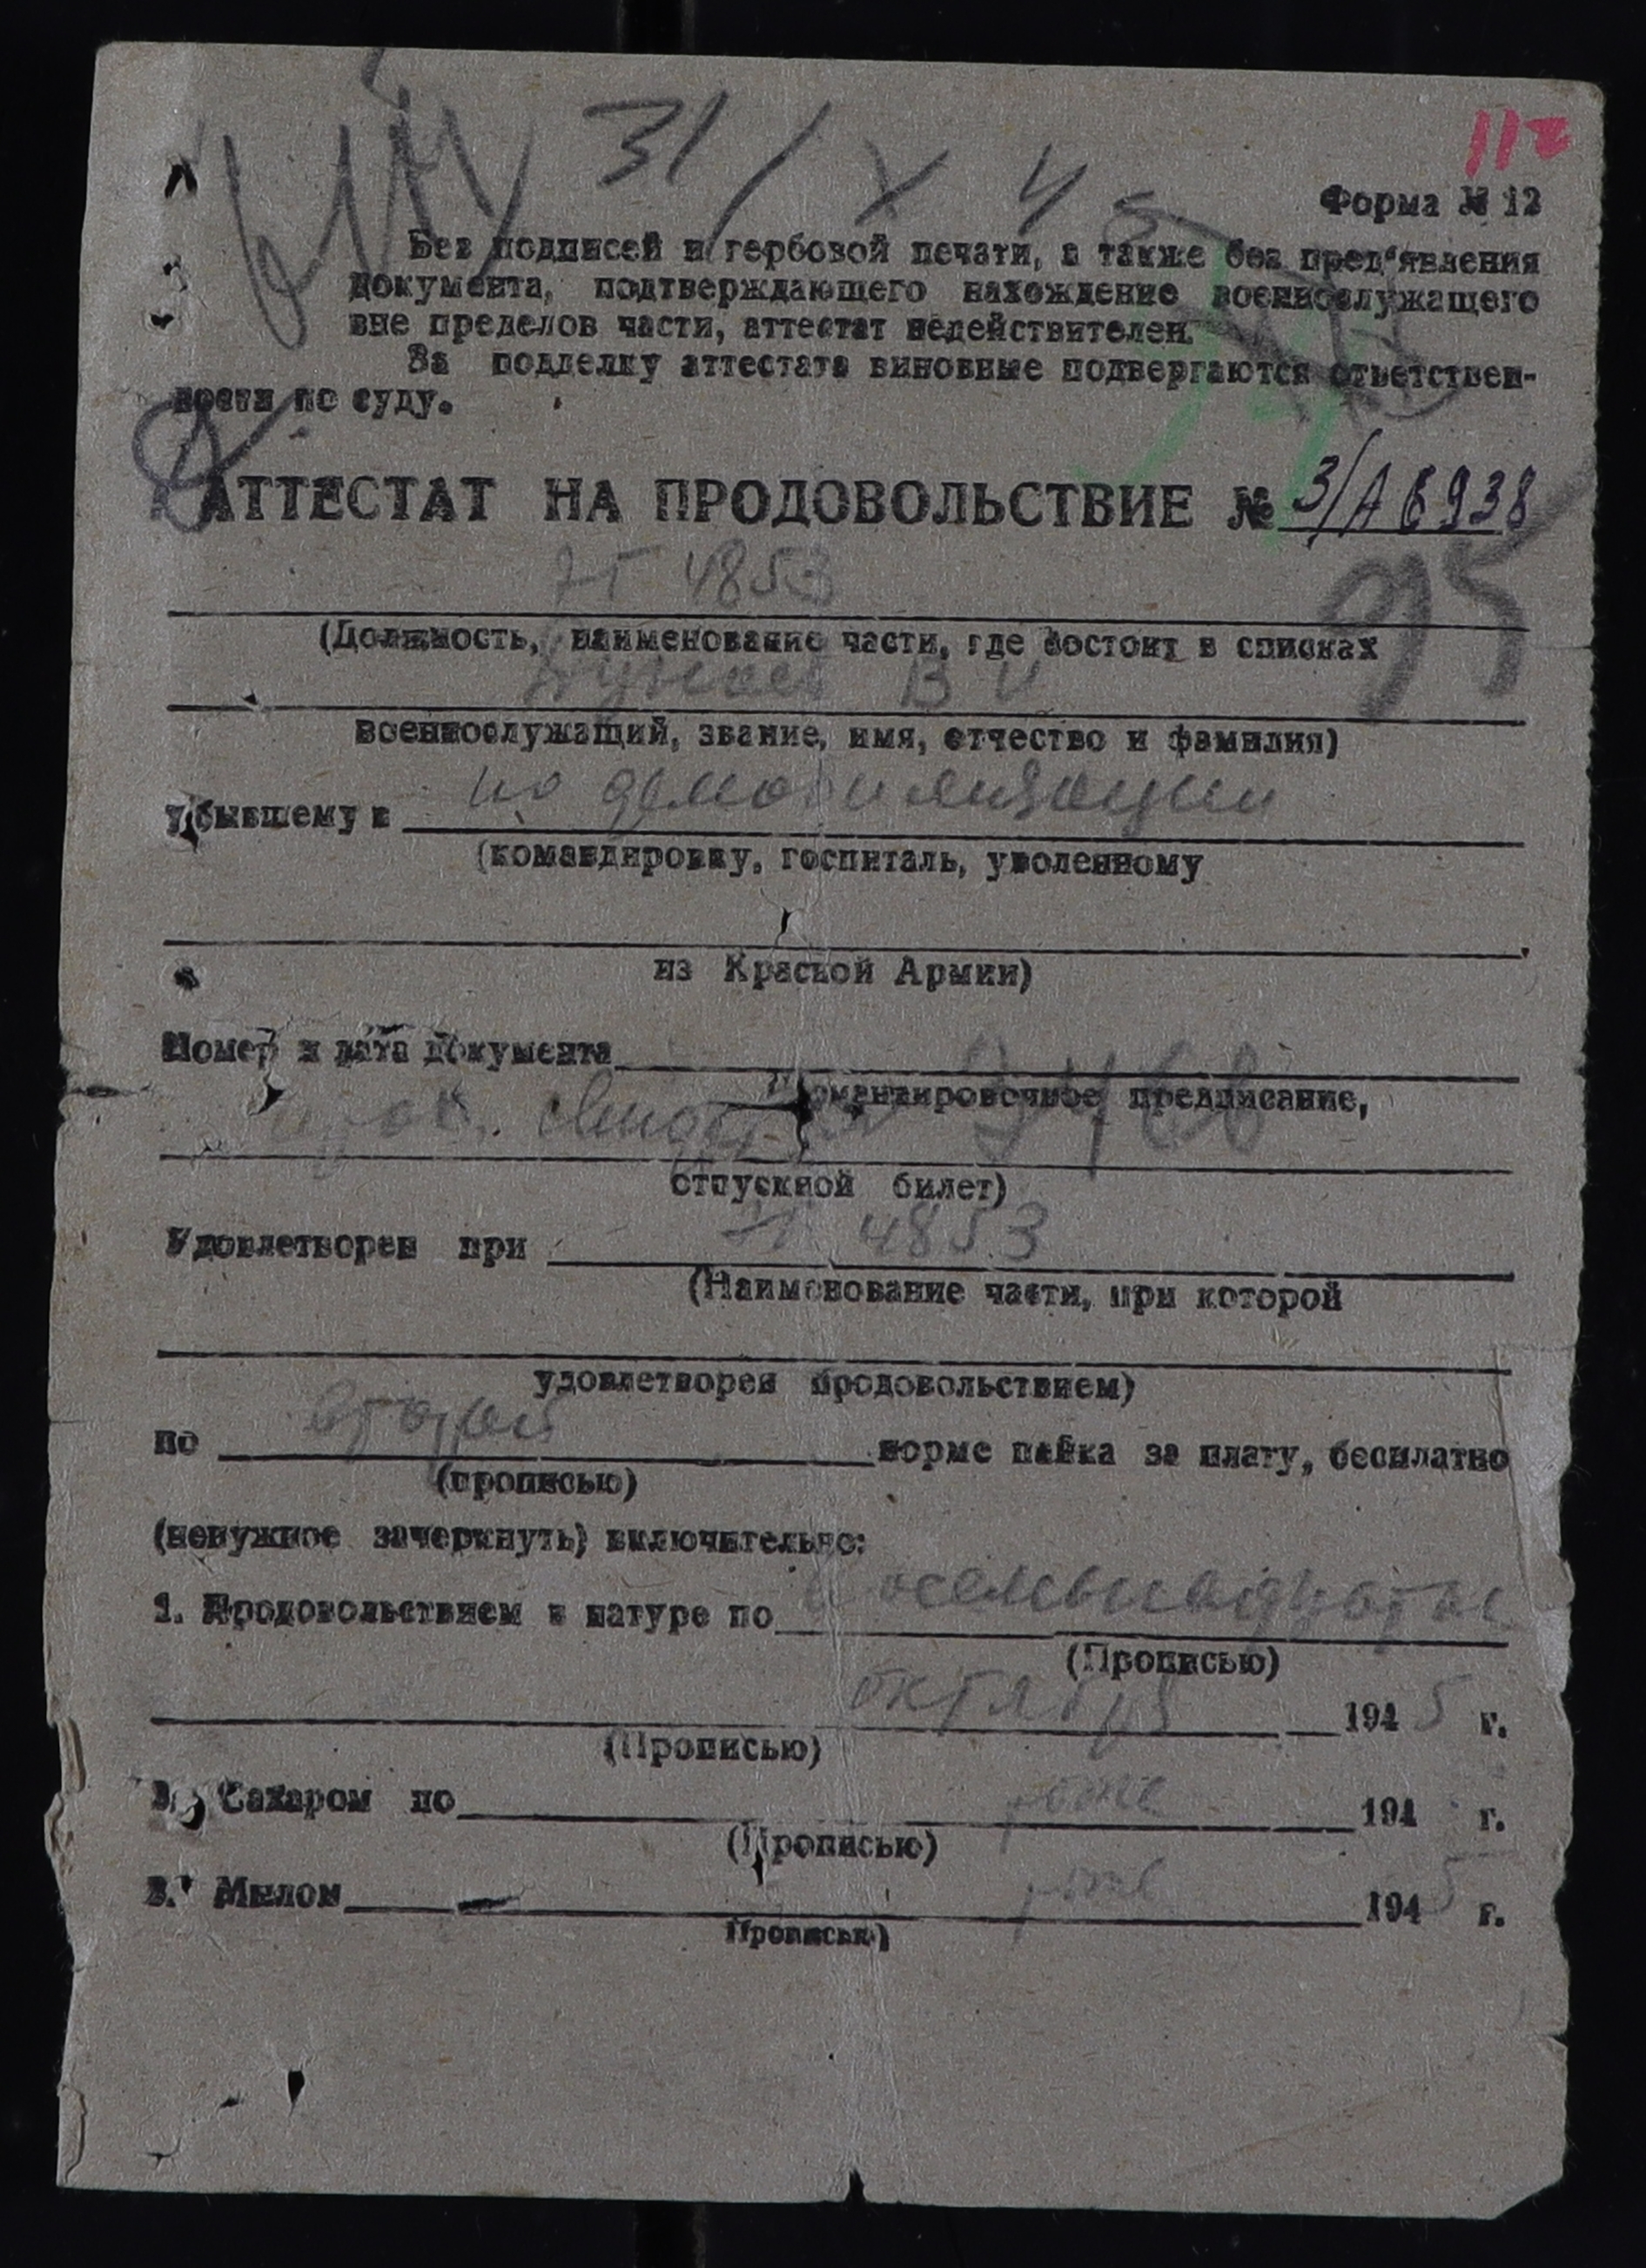 112
31/X 45
Форма № 12
Без подписей и гербовой печати, а также без пред'явления
документа, подтверждающего нахождение военнослужащего
вне пределов части, аттестат недействителен.
За подделку аттестата виновные подвергаются ответствен-
ности по суду.
АТТЕСТАТ НА ПРОДОВОЛЬСТВИЕ № 3/А 6938
4853
95
(Должность, наименование части, где состоит в списках
В И
военнослужащий, звание, имя, отчество и фамилия)
убывшему в по демобилизации
(командировку, госпиталь, уволенному
из Красной Армии)
Номер и дата документа
(Командировочное предписание,
отпускной билет)
Удовлетворен при 4853
(Наименование части, при которой
удовлетворен продовольствием)
по второй норме пайка за плату, бесплатно
(прописью)
(ненужное зачеркнуть) включительно:
1. Продовольствием в натуре по
(Прописью)
октября 1945 г.
(Прописью)
2. Сахаром по тоже 194 г.
(Прописью)
3. Мылом — тоже 1945 г.
Прописью)